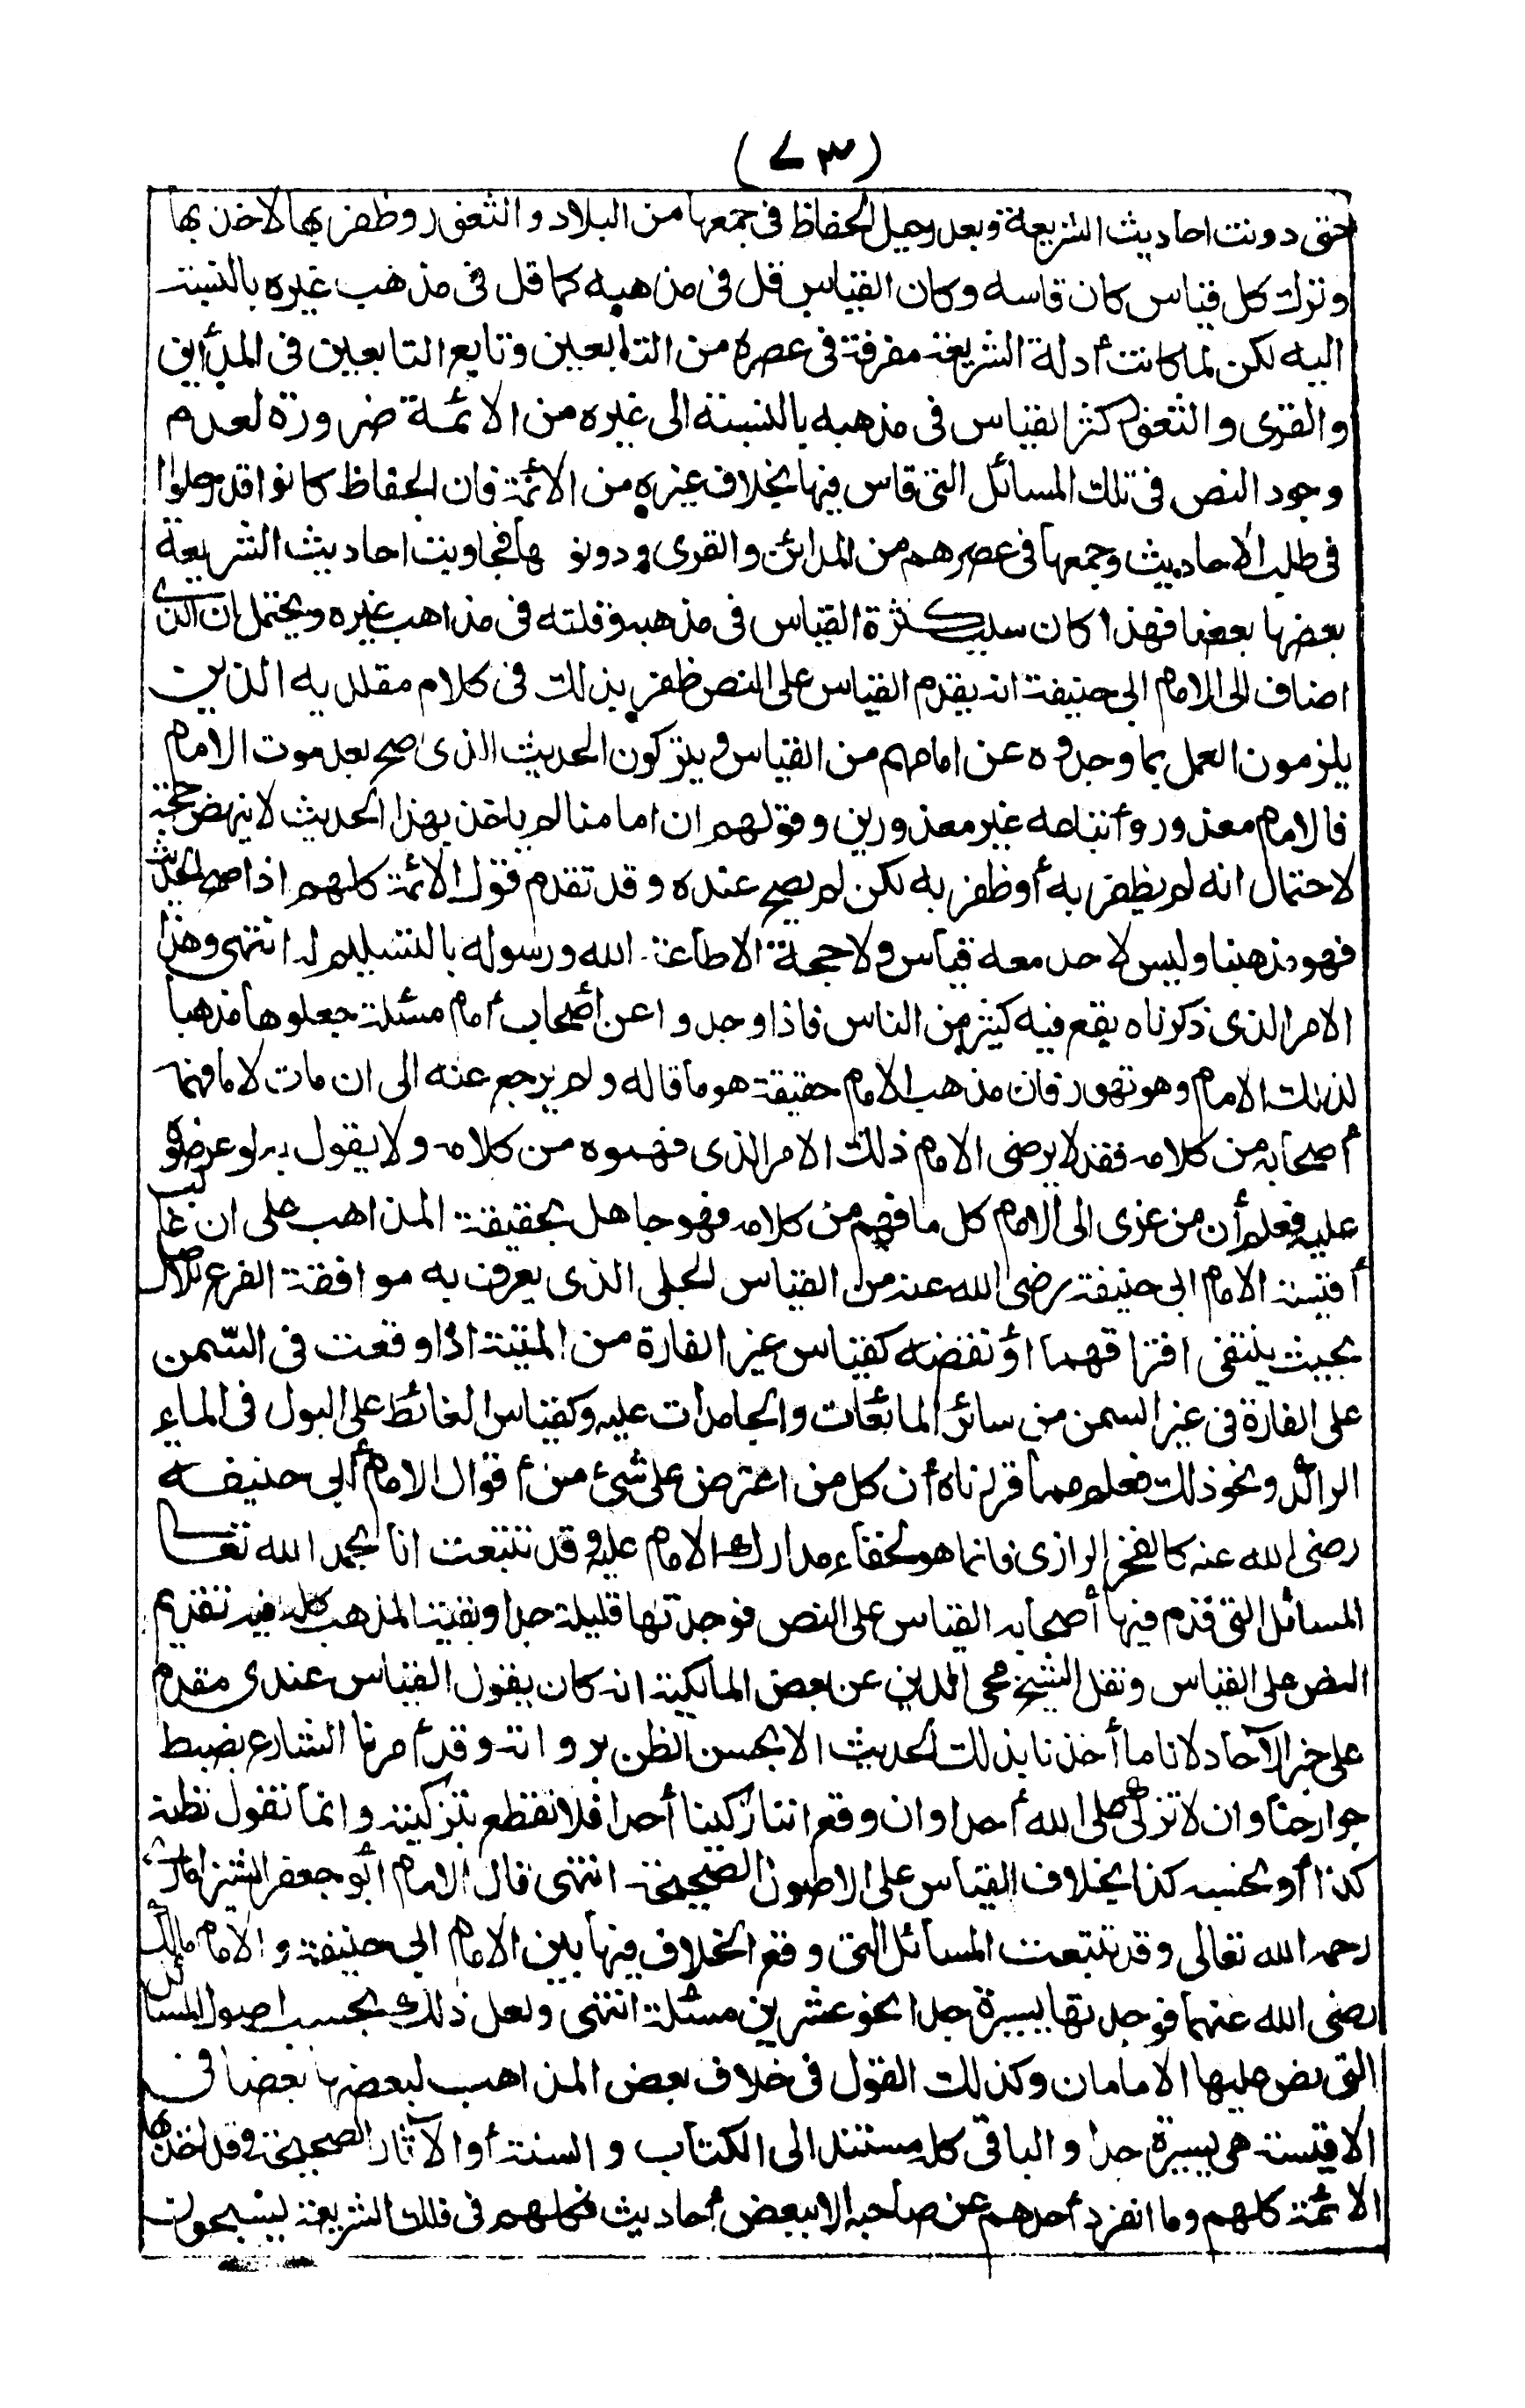 (٧٣)
حتى دونت احاديث الشريعة وبعد رحيل الحفاظ فى جمعها من البلاد والثغور وظفر بها لاخذ بها
وترك كل قياس كان قاسه وكان القياس قل فى مذهبه كما قل فى مذهب غيره بالنسبة
اليه لكن لما كانت أدلة الشريعة مفرقة فى عصره من التابعين وتابع التابعين فى المدائن
والقرى والثغور كثر القياس فى مذهبه بالنسبة الى غيره من الائمة ضرورة لعدم
وجود النص فى تلك المسائل التى قاس فيها بخلاف غيره من الائمة فان الحفاظ كانوا قد رحلوا
فى طلب الاحاديث وجمعها فى عصرهم من المدائن والقرى ودونوها فجاوبت احاديث الشريعة
بعضها بعضا فهذا كان سبب كثرة القياس فى مذهبه وقلته فى مذاهب غيره ويحتمل ان الذى
اضاف الى الامام ابى حنيفة انه يقدم القياس على النص ظفر بذلك فى كلام مقلديه الذين
يلزمون العمل بما وجدوه عن امامهم من القياس ويتركون الحديث الذى صح بعد موت الامام
فالامام معذور وأتباعه غير معذورين وقولهم ان امامنا لم ياخذ بهذا الحديث لا ينهض حجة
لاحتمال انه لم يظفر به أو ظفر به لكن لم يصح عنده وقد تقدم قول الائمة كلهم اذا صح الحديث
فهو مذهبنا وليس لاحد معه قياس ولا حجة الاطاعة الله ورسوله بالتسليم له انتهى وهذا
الامر الذى ذكرناه يقع فيه كثير من الناس فاذا وجدوا عن أصحاب امام مسئلة جعلوها مذهبا
لذلك الامام وهو تهور فان مذهب الامام حقيقة هو ما قاله ولم يرجع عنه الى ان مات لا ما فهمه
أصحابه من كلامه فقد لا يرضى الامام ذلك الامر الذى فهموه من كلامه ولا يقول به لو عرضوه
عليه فعلم أن من عزى الى الامام كل ما فهم من كلامه فهو جاهل بحقيقة المذاهب على ان غالب
أقيسة الامام ابى حنيفة رضى الله عنه من القياس الجلى الذى يعرف به موافقة الفرع للاصل
بحيث ينتفى افتراقهما او نقضه كقياس غير الفارة من الميتة اذا وقعت فى السمن
على الفارة فى غير السمن من سائر المائعات والجامدات عليه وكقياس الغائط على البول فى الماء
الراكد ونحو ذلك فعلم مما قررناه أن كل من اعترض على شئ من أقوال الامام أبى حنيفه
رضى الله عنه كالفخر الرازى فانما هو لخفاء مدارك الامام عليه وقد تتبعت انا بحمد الله تعالى
المسائل التى قدم فيها أصحابه القياس على النص فوجدتها قليلة جدا وبقية المذهب كله فيه تقديم
النص على القياس ونقل الشيخ محى الدين عن بعض المالكية انه كان يقول القياس عندى مقدم
على خبر الآحاد لانا ما أخذنا بذلك الحديث الا بحسن الظن برواته وقد أمرنا الشارع بضبط
جوارحنا وان لا نزكى على الله أحدا وان وقع اننا زكينا أحدا فلا نقطع بتزكيته وانما نقول نظنه
كذا أو نحسبه كذا بخلاف القياس على الاصول الصحيحة انتهى قال الامام ابو جعفر الشيزامارى
رحمه الله تعالى وقد تتبعت المسائل التى وقع الخلاف فيها بين الامام ابى حنيفة والامام مالك
رضى الله عنهما فوجدتها يسيرة جدا نحو عشرين مسئلة انتهى ولعل ذلك بحسب اصول المسائل
التى نص عليها الامامان وكذلك القول فى خلاف بعض المذاهب لبعضها بعضا فى
الاقيسة هى يسيرة جدا والباقى كله مستند الى الكتاب والسنة أو الآثار الصحيحة وقد اخذ بها
الائمة كلهم وما انفرد أحدهم عن صاحبه الا ببعض أحاديث فكلهم فى فلك الشريعة يسبحون